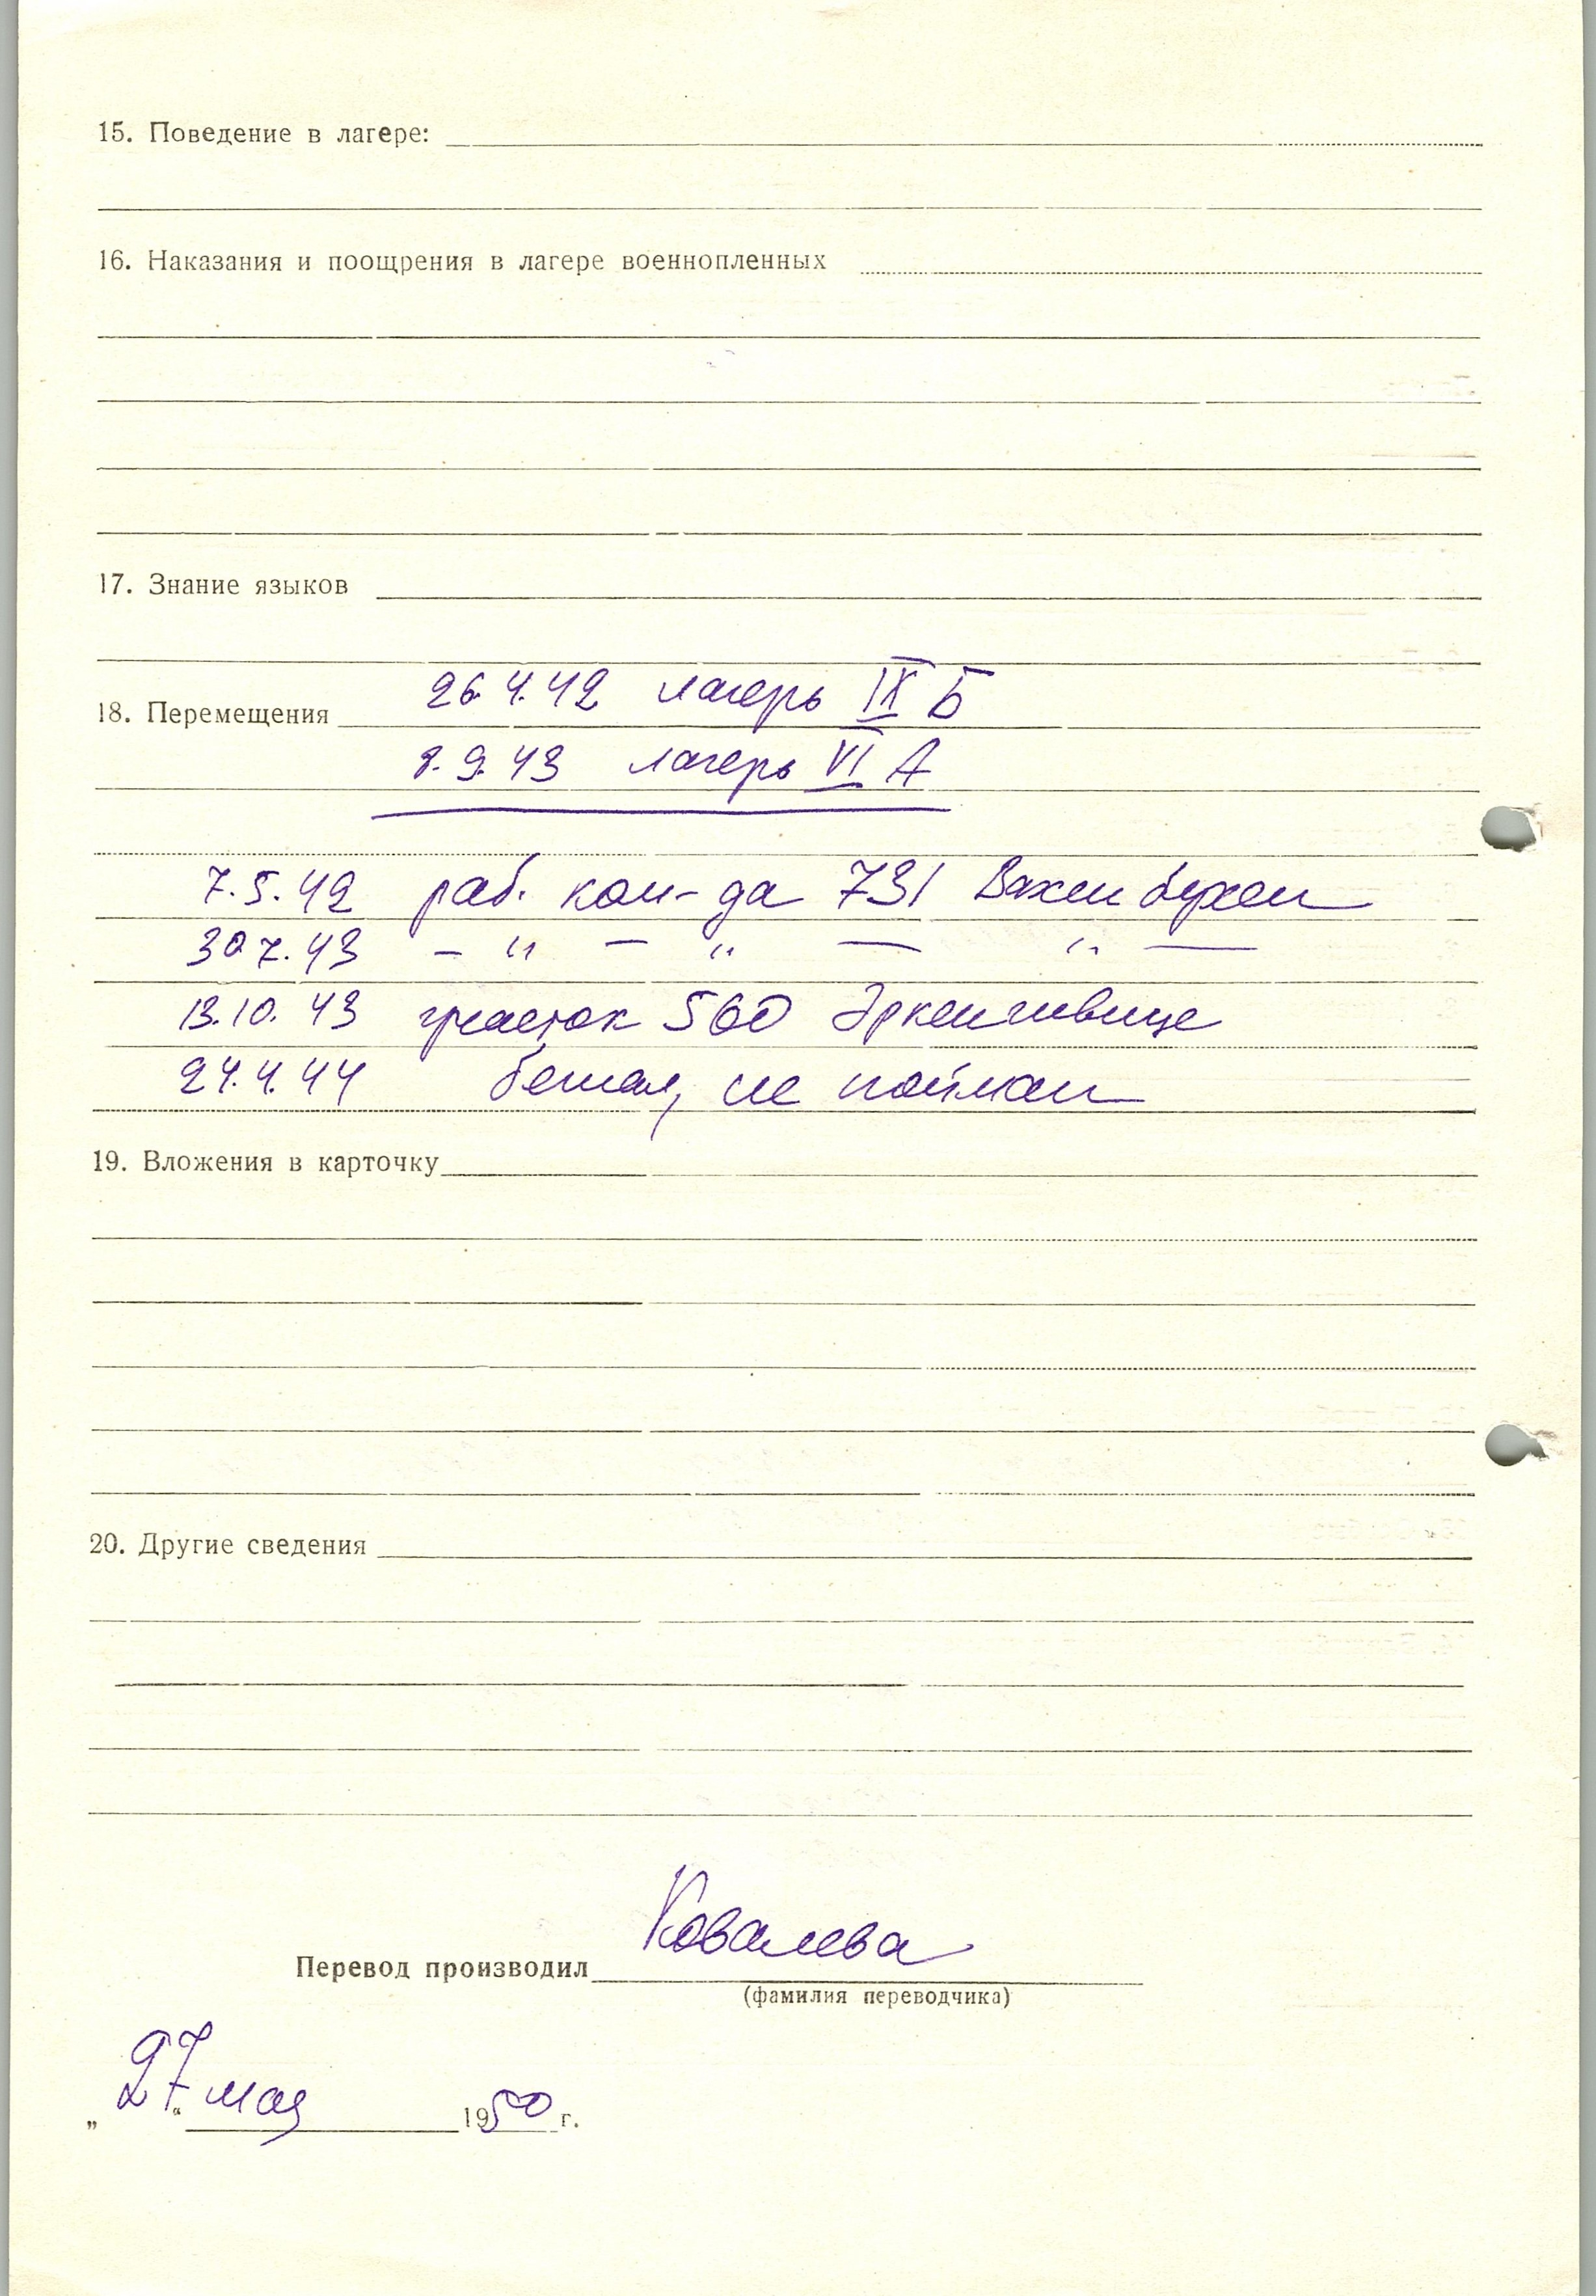 15. Поведение в лагере:
16. Наказания и поощрения в лагере военнопленных
17. Знание языков
18. Перемещения 26.4.42 лагерь IX Б
8.9.43 лагерь VI А
7.5.42 раб. ком-да 731 Вахенбухен
30.7.43 – " – " – " –
13.10.43 участок 560 Эркеншвице
24.4.44 бежал, не пойман
19. Вложения в карточку
20. Другие сведения
Перевод производил Ковалева
(фамилия переводчика)
„27“ мая 1950 г.